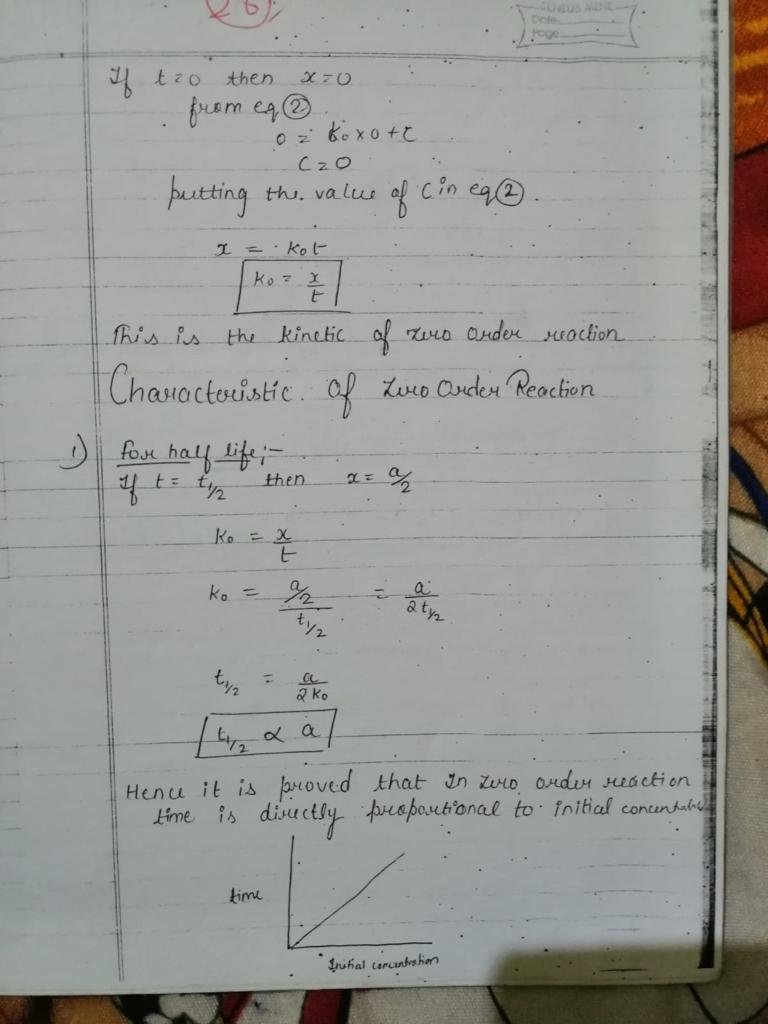 26
Date
Page
If t=0 then x=0
from eq ②
0 = K₀×0+c
C=0
putting the value of C in eq ②.
x = K₀t
K₀ = x/t
This is the kinetic of zero order reaction
Characteristic of Zero Order Reaction
1) For half life;-
If t = t1/2 then x = a/2
K₀ = x/t
K₀ = a/2 / t1/2 = a / 2t1/2
t1/2 = a / 2K₀
t1/2 ∝ a
Hence it is proved that In zero order reaction
time is directly proportional to initial concentration
time
Initial concentration